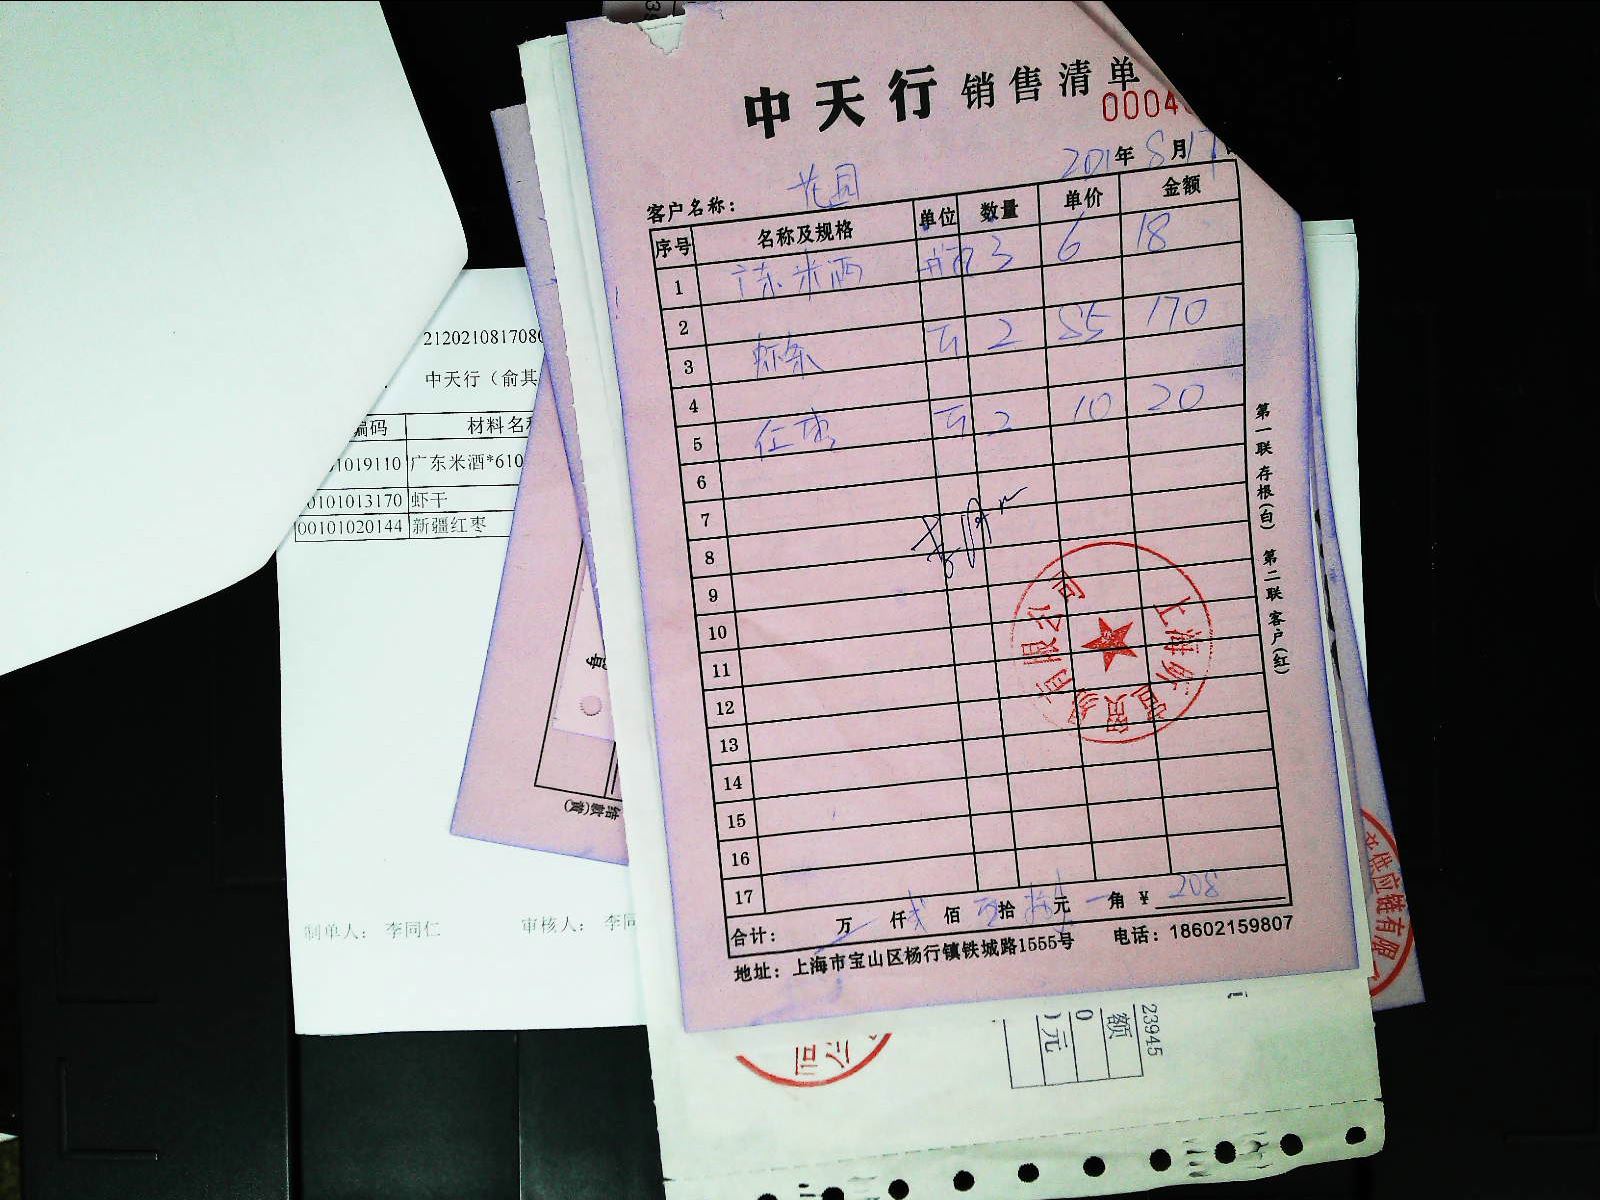 中天行 销售清单
0004
2021年8月17
客户名称: 花园
序号 名称及规格 单位 数量 单价 金额
1 广东米酒 瓶 3 6 18
2
3 虾干 斤 2 85 170
4
5 红枣 斤 2 10 20
6
7
8
9
10
11
12
13
14
15
16
17
合计: 万 仟 佰 拾 元 角 ¥ 208
地址: 上海市宝山区杨行镇铁城路1555号 电话: 18602159807
第一联 存根(白) 第二联 客户(红)
有限公司
上海
2120210817080
中天行（俞其
编码 材料名称
01019110 广东米酒*610
00101013170 虾干
00101020144 新疆红枣
制单人： 李同仁 审核人： 李同
号
结款(黄)
供应链有限
23945
额
0
元